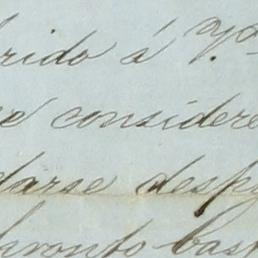 rido á
e considere
darse desp
pronto bas